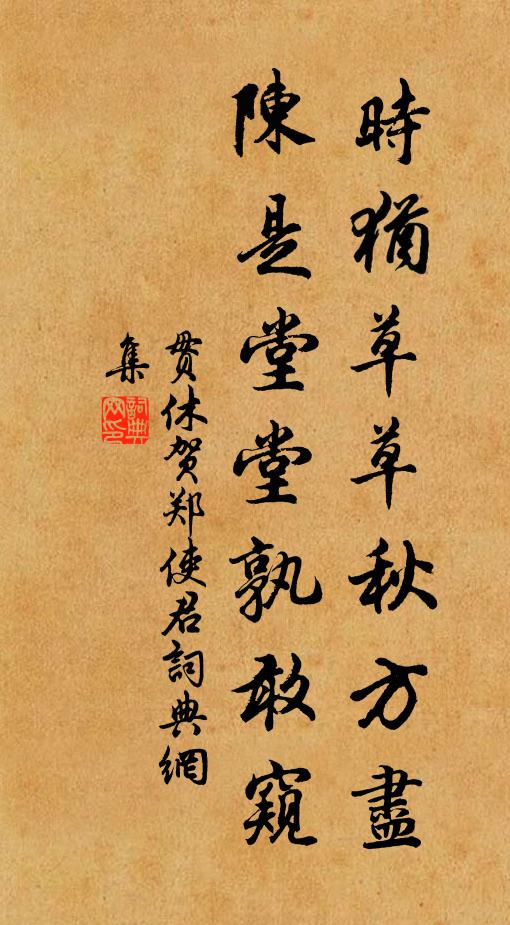 時猶草草秋方盡
陳是堂堂孰敢窺
贯休贺郑使君詞典網
集
詞典
网印